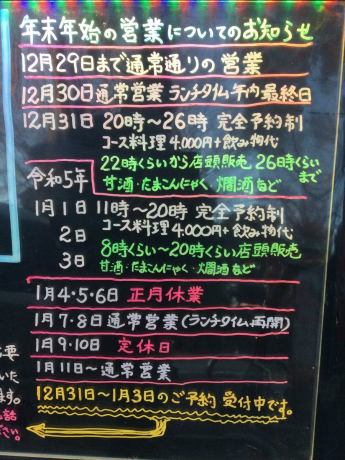 年末年始の営業についてのお知らせ
12月29日まで通常通りの営業
12月30日通常営業 ランチタイム年内最終日
12月31日 20時〜26時 完全予約制
コース料理 4,000円+飲み物代
22時くらいから店頭販売 26時くらいまで
甘酒・たまこんにゃく、燗酒など
令和5年
1月1日 11時〜20時 完全予約制
コース料理 4,000円+飲み物代
2日
3日
8時くらい〜20時くらい店頭販売
甘酒・たまこんにゃく・燗酒など
1月4・5・6日 正月休業
1月7・8日通常営業(ランチタイム再開)
1月9・10日 定休日
1月11日〜通常営業
12月31日〜1月3日のご予約 受付中です。
要
いた
ます。
お話
ださい。